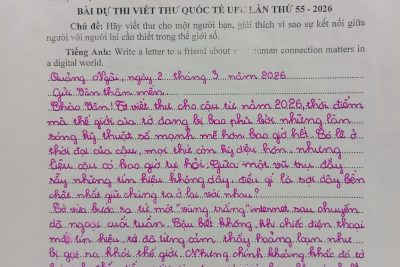 BÀI DỰ THI VIẾT THƯ QUỐC TẾ UPU LẦN THỨ 55 - 2026
Chủ đề: Hãy viết thư cho một người bạn, giải thích vì sao sự kết nối giữa
người với người lại cần thiết trong thế giới số.
Tiếng Anh: Write a letter to a friend about human connection matters in
a digital world.
Quảng Ngãi, ngày 2 tháng 3 năm 2026
Gửi Vân thân mến
Chào Vân! Tớ viết thư cho cậu từ năm 2026, thời điểm
mà thế giới của tớ đang bị bao phủ bởi những làn
sóng kỹ thuật số mạnh mẽ hơn bao giờ hết. Có lẽ ở
thời đại của cậu, mọi thứ còn kỳ diệu hơn, nhưng
liệu cậu có bao giờ tự hỏi: Giữa một vũ trụ đầy
rẫy những tín hiệu không dây, điều gì là sợi dây bền
chặt nhất giữ chúng ta ở lại với nhau?
Tớ vừa bước ra từ một "vùng trắng" internet sau chuyến
dã ngoại cuối tuần. Cậu biết không, khi chiếc điện thoại
mất tín hiệu, tớ đã từng cảm thấy hoảng loạn như
bị gạt ra khỏi thế giới. Nhưng chính khoảng khắc đó, tớ